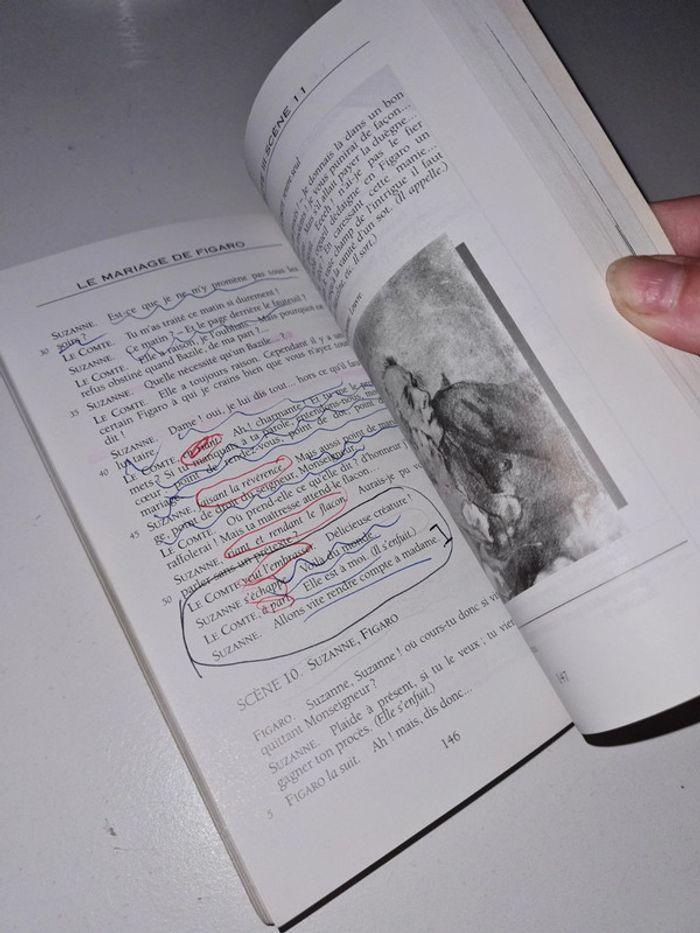 LE MARIAGE DE FIGARO
SUZANNE. Est-ce que je ne m'y promène pas tous les
30 soirs ?
LE COMTE. Tu m'as traité ce matin si durement !
SUZANNE. Ce matin ? – Et le page derrière le fauteuil ?
LE COMTE. Elle a raison, je l'oubliais. Mais pourquoi ce
refus obstiné quand Bazile, de ma part ?...
35 SUZANNE. Quelle nécessité qu'un Bazile... ?
LE COMTE. Elle a toujours raison. Cependant il y a un
certain Figaro à qui je crains bien que vous n'ayez tout
dit !
SUZANNE. Dame ! oui, je lui dis tout... hors ce qu'il faut
lui taire.
40 LE COMTE, Ah ! charmante ! Et tu me le
mets ? Si tu manquais à ta parole, entendons-nous, mon
cœur : point de rendez-vous, point de dot, point de
mariage.
SUZANNE, faisant la révérence. Mais aussi point de
ge, point de droit du seigneur, Monseigneur.
45 LE COMTE. Où prend-elle ce qu'elle dit ? d'honneur
raffolerai ! Mais ta maîtresse attend le flacon...
SUZANNE, riant et rendant le flacon. Aurais-je pu vous
parler sans un prétexte ?
50 LE COMTE veut l'embrasser. Délicieuse créature !
SUZANNE s'échappe. Voilà du monde.
LE COMTE, à part. Elle est à moi. (Il s'enfuit.)
SUZANNE. Allons vite rendre compte à madame.
SCÈNE 10. SUZANNE, FIGARO
FIGARO. Suzanne, Suzanne ! où cours-tu donc si vite
quittant Monseigneur ?
SUZANNE. Plaide à présent, si tu le veux ; tu viens
gagner ton procès. (Elle s'enfuit.)
5 FIGARO la suit. Ah ! mais, dis donc...
146
SCÈNE 11
seul
je donnais là dans un bon
je vous punirai de façon...
Mais s'il allait payer la duègne...
Eeeeh ! n'ai-je pas le fier
dédaigne en Figaro un
En caressant cette manie...
champ de l'intrigue il faut
la vanité d'un sot. (Il appelle.)
etc. Il sort.)
Louvre
147